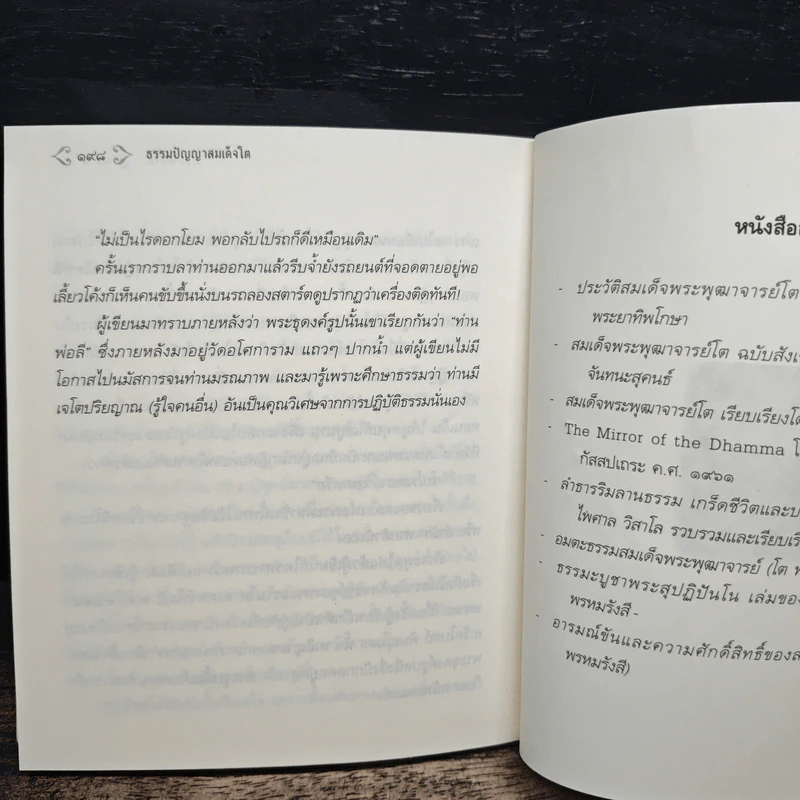 ๑๙๘ ธรรมปัญญาสมเด็จโต
“ไม่เป็นไรดอกโยม พอกลับไปรถก็ดีเหมือนเดิม”
ครั้นเรากราบลาท่านออกมาแล้วรีบจ้ำยังรถยนต์ที่จอดตายอยู่พอ
เลี้ยวโค้งก็เห็นคนขับขึ้นนั่งบนรถลองสตาร์ตดูปรากฏว่าเครื่องติดทันที!
ผู้เขียนมาทราบภายหลังว่า พระธุดงค์รูปนั้นเขาเรียกกันว่า “ท่าน
พ่อลี” ซึ่งภายหลังมาอยู่วัดอโศการาม แถวๆ ปากน้ำ แต่ผู้เขียนไม่มี
โอกาสไปนมัสการจนท่านมรณภาพ และมารู้เพราะศึกษาธรรมว่า ท่านมี
เจโตปริยญาณ (รู้ใจคนอื่น) อันเป็นคุณวิเศษจากการปฏิบัติธรรมนั่นเอง
หนังสือ
- ประวัติสมเด็จพระพุฒาจารย์โต
พระยาทิพโกษา
- สมเด็จพระพุฒาจารย์โต ฉบับสัง
จันทนะสุคนธ์
- สมเด็จพระพุฒาจารย์โต เรียบเรียงโ
- The Mirror of the Dhamma โ
กัสสปเถระ ค.ศ. ๑๙๖๑
- ลำธารริมลานธรรม เกร็ดชีวิตและ
ไพศาล วิสาโล รวบรวมและเรียบเรี
- อมตะธรรมสมเด็จพระพุฒาจารย์ (โต
- ธรรมะบูชาพระสุปฏิปันโน เล่มของ
พรหมรังสี -
- อารมณ์ขันและความศักดิ์สิทธิ์ของ
พรหมรังสี)